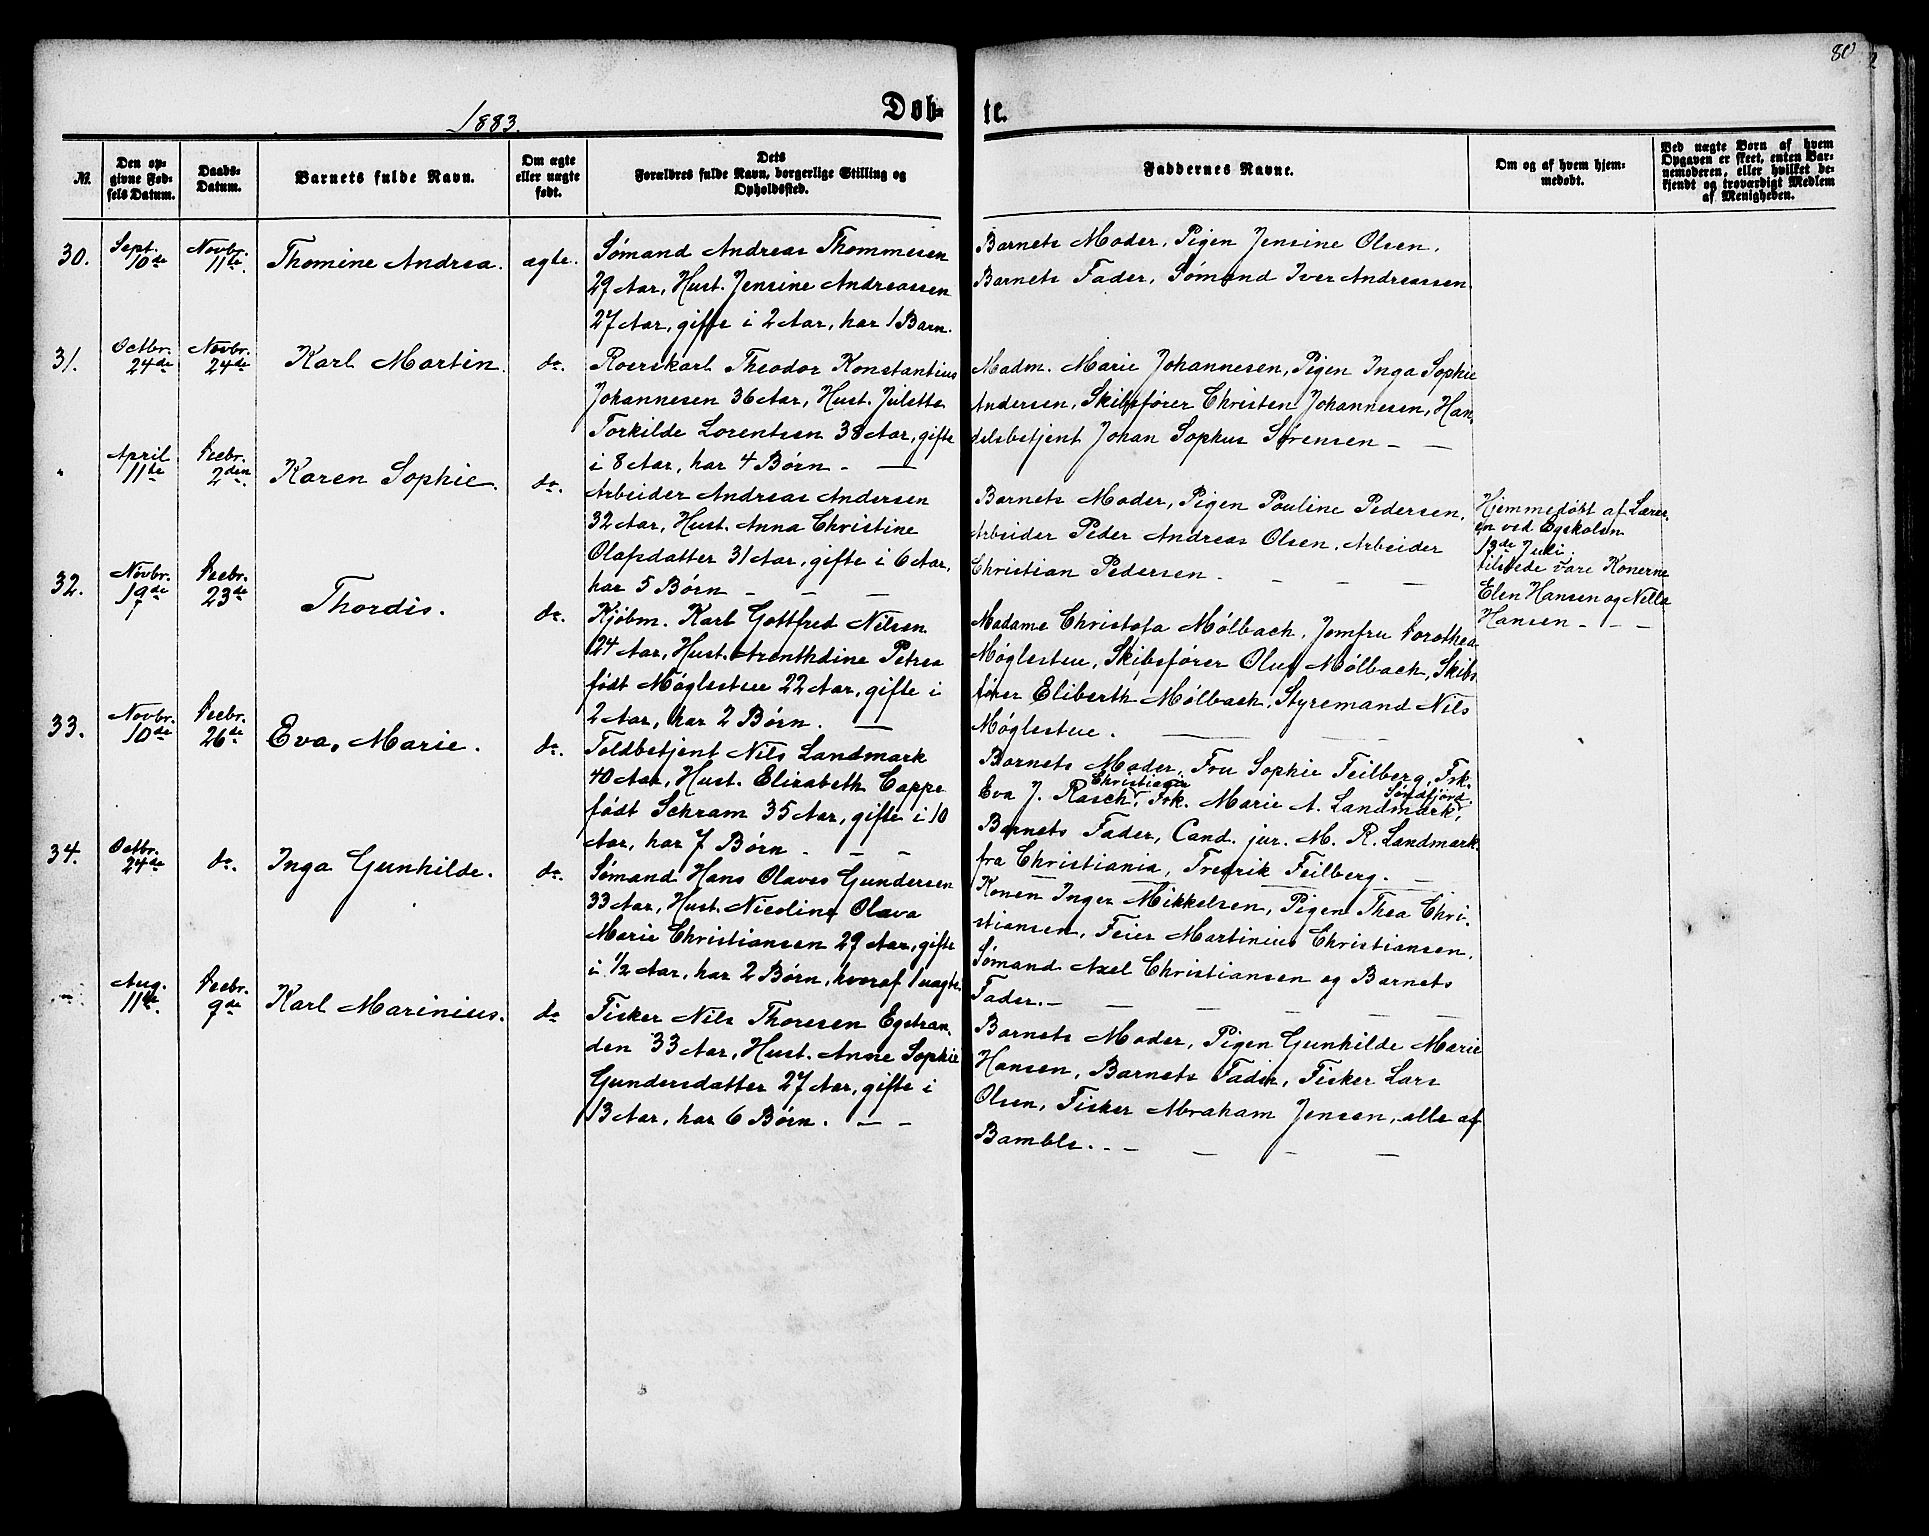 80
1883.
Døb-
te.
№.
Den op-
givne Fød-
sels Datum.
Daabs-
Datum.
Barnets fulde Navn.
Om ægte
eller uægte
født.
Dets
Forældres fulde Navn, borgerlige Stilling og
Opholdssted.
Faddernes Navne.
Om og af hvem hjem-
medøbt.
Ved uægte Børn af hvem
Opgaven er skeet, enten Bar-
nemoderen, eller hvilket be-
kjendt og troværdigt Medlem
af Menigheden.
30.
Sept.
10de
Novbr.
11te.
Thomine Andrea.
ægte.
Sømand Andreas Thommesen
29 Aar, Hust. Jensine Andreassen
27 Aar, gifte i 2 Aar, har 1 Barn.
Barnets Moder, Pigen Jensine Olsen.
Barnets Fader, Sømand Iver Andreassen.
31.
Octbr.
24de
Novbr.
24de
Karl Martin.
do.
Roerskarl Theodor Konstantius
Johannesen 36 Aar, Hust. Julette
Torkilde Lorentsen 38 Aar, gifte
i 8 Aar, har 4 Børn. —
Madm. Marie Johannesen, Pigen Inga Sophie
Andersen, Skibsfører Christen Johannesen, Han-
delsbetjent Johan Sophus Sørensen — —
April
11te
Decbr.
2den.
Karen Sophie.
do.
Arbeider Andreas Andersen
32 Aar, Hust. Anna Christine
Olafsdatter 31 Aar, gifte i 6 Aar,
har 5 Børn — — —
Barnets Moder, Pigen Pouline Pedersen.
Arbeider Peder Andreas Olsen. Arbeider
Christian Pedersen. — — —
Hjemmedøbt af Lærer-
en ved Egskolen
13de Juli.
tilstede vare Konerne
Elen Hansen og Nella
Hansen — — —
32.
Novbr.
19de
Decbr.
23de
Thordis.
do.
Kjøbm. Karl Gottfred Nilsen
24 Aar, Hust. Arenthdine Petrea
født Møglestue 22 Aar, gifte i
2 Aar, har 2 Børn. —
Madame Christofa Mølbach, Jomfru Dorothea
Møglestue, Skibsfører Oluf Mølbach, Skibs-
fører Eliberth Mølbach, Styremand Nils
Møglestue. — —
33.
Novbr.
10de
Decbr.
26de
Eva, Marie.
do.
Toldbetjent Nils Landmark
40 Aar, Hust. Elisabeth Cappe
født Schram 35 Aar, gifte i 10
Aar, har 7 Børn. — —
Barnets Moder, Fru Sophie Feilberg, Frk.
Eva J. Rasch, Frk. Marie A. Landmark,
Søndfjord.
Barnets Fader, Cand. jur. M. R. Landmark
fra Christiania, Fredrik Feilberg. —
34.
Octbr.
24de
do.
Inga Gunhilde.
do.
Sømand Hans Olaves Gundersen
33 Aar, Hust. Nicoline Olava
Marie Christiansen 29 Aar, gifte
i 1/2 Aar, har 2 Børn, hvoraf 1 uægte.
Konen Inger Mikkelsen, Pigen Thea Chri-
stiansen, Feier Martinius Christiansen,
Sømand Axel Christiansen og Barnets
Fader. — — — — —
—
Aug.
11te.
Decbr.
9de
Karl Marinius.
do
Fisker Nils Thoresen Egstran-
den 33 Aar, Hust. Anne Sophie
Gundersdatter 27 Aar, gifte i
13 Aar, har 6 Børn. — —
Barnets Moder, Pigen Gunhilde Marie
Hansen, Barnets Fader, Fisker Lars
Olsen, Fisker Abraham Jensen, alle af
Bamble. — — — —